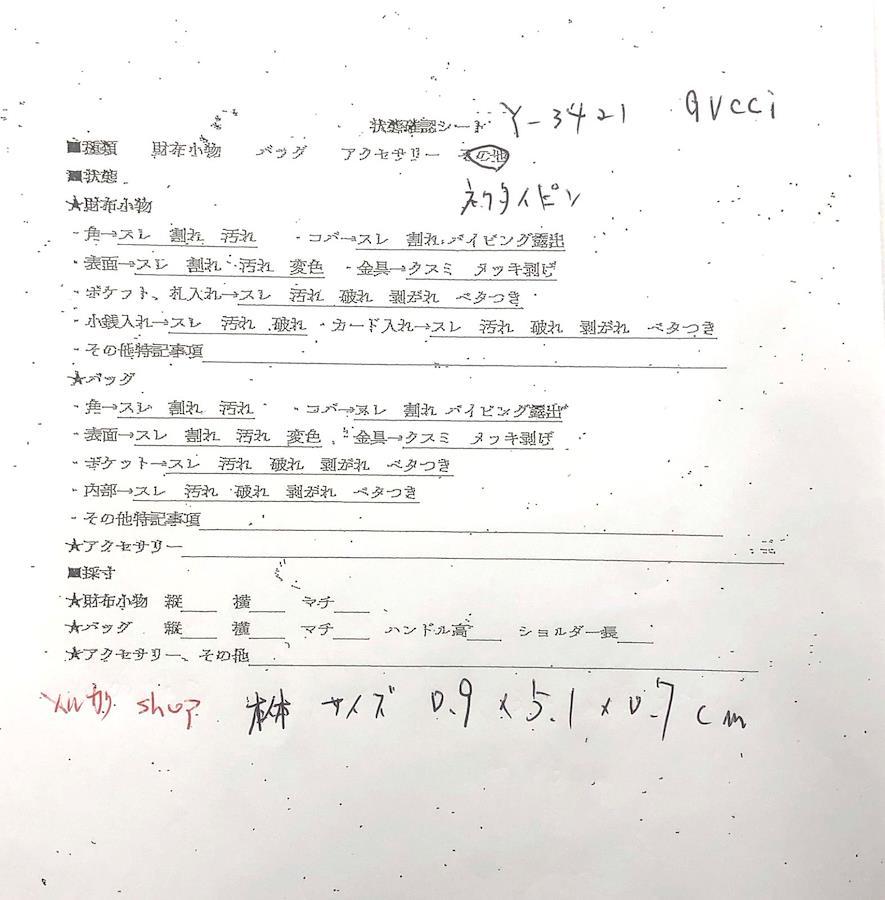 状態確認シート Y-3421 GUCCI
■種類 財布小物 バッグ アクセサリー その他
■状態 ネクタイピン
★財布小物
・角→スレ 割れ 汚れ ・コバ→スレ 割れ パイピング露出
・表面→スレ 割れ 汚れ 変色 ・金具→クスミ メッキ剥げ
・ポケット、札入れ→スレ 汚れ 破れ 剥がれ ベタつき
・小銭入れ→スレ 汚れ 破れ ・カード入れ→スレ 汚れ 破れ 剥がれ ベタつき
・その他特記事項
★バッグ
・角→スレ 割れ 汚れ ・コバ→スレ 割れ パイピング露出
・表面→スレ 割れ 汚れ 変色 ・金具→クスミ メッキ剥げ
・ポケット→スレ 汚れ 破れ 剥がれ ベタつき
・内部→スレ 汚れ 破れ 剥がれ ベタつき
・その他特記事項
★アクセサリー
■採寸
★財布小物 縦 横 マチ
★バッグ 縦 横 マチ ハンドル高 ショルダー長
★アクセサリー、その他
メルカリ shop 本体 サイズ 0.9 x 5.1 x 0.7 cm